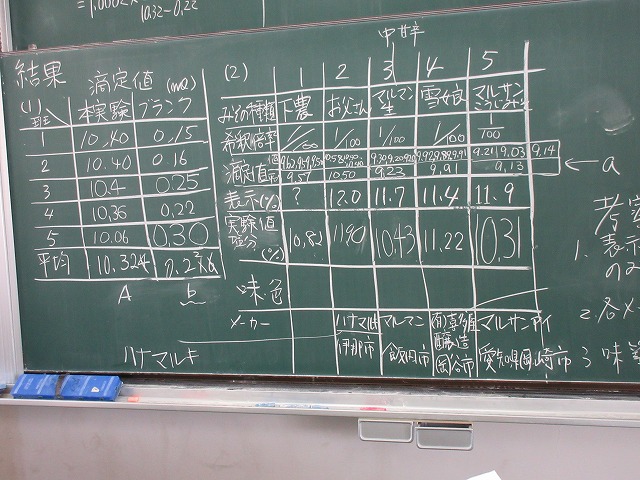 10.32-0.22
結果
滴定値 (mL)
(1) 班 本実験 ブランク
1 10.40 0.15
2 10.40 0.16
3 10.4 0.25
4 10.36 0.22
5 10.06 0.30
平均 10.324
A b
ハナマルキ
中辛
(2) 1 2 3 4 5
みその種類 下農 お父さん マルマン 生 雪娘 マルサン
希釈倍率 1/100 1/100 1/100 1/100 1/100
滴定値 9.21 9.03 9.14 ← a
9.57 10.50 9.23 9.91 9.13
表示(%) ? 12.0 11.7 11.4 11.9
実験値 塩分 (%) 10.82 11.90 10.43 11.22 10.31
味色
メーカー ハナマルキ 伊那市 マルマン 飯田市 (有)喜多屋 醸造 岡谷市 マルサンアイ 愛知県岡崎市
考
1. 表示
のみ
2. 各メ
3 味